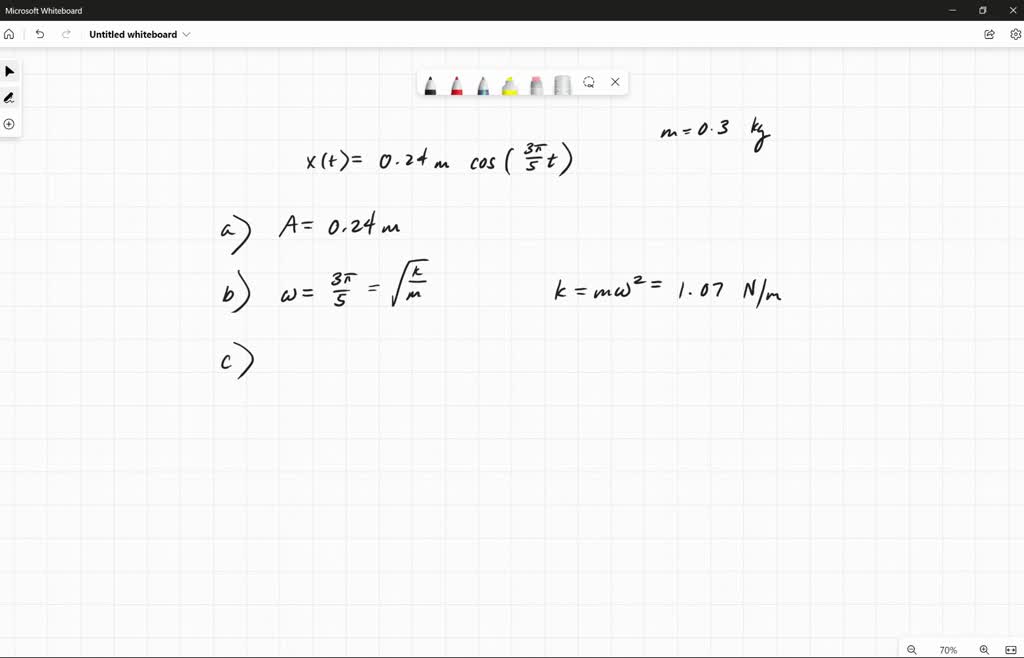 Microsoft Whiteboard
Untitled whiteboard
m = 0.3 kg
x(t) = 0.24 m cos(3π/5 t)
a) A = 0.24 m
b) ω = 3π/5 = √(k/m) k = mω² = 1.07 N/m
c)
70%